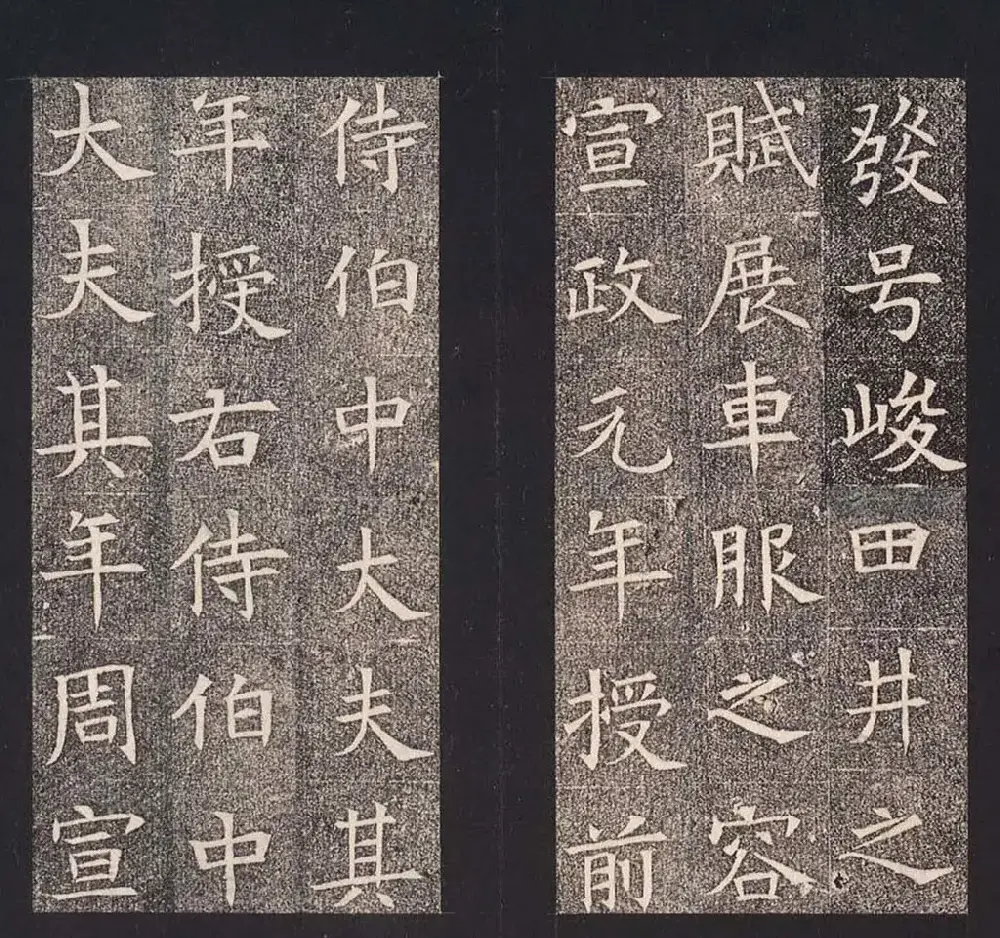 發号峻田井之
賦展車服之容
宣政元年授前
侍伯中大夫其
年授右侍伯中
大夫其年周宣